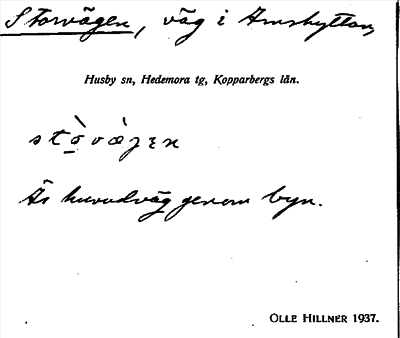 Storvägen, väg i Amshyttan,
Husby sn, Hedemora tg, Kopparbergs län.
stò̱vàgɛn
Är huvudväg genom byn.
OLLE HILLNER 1937.